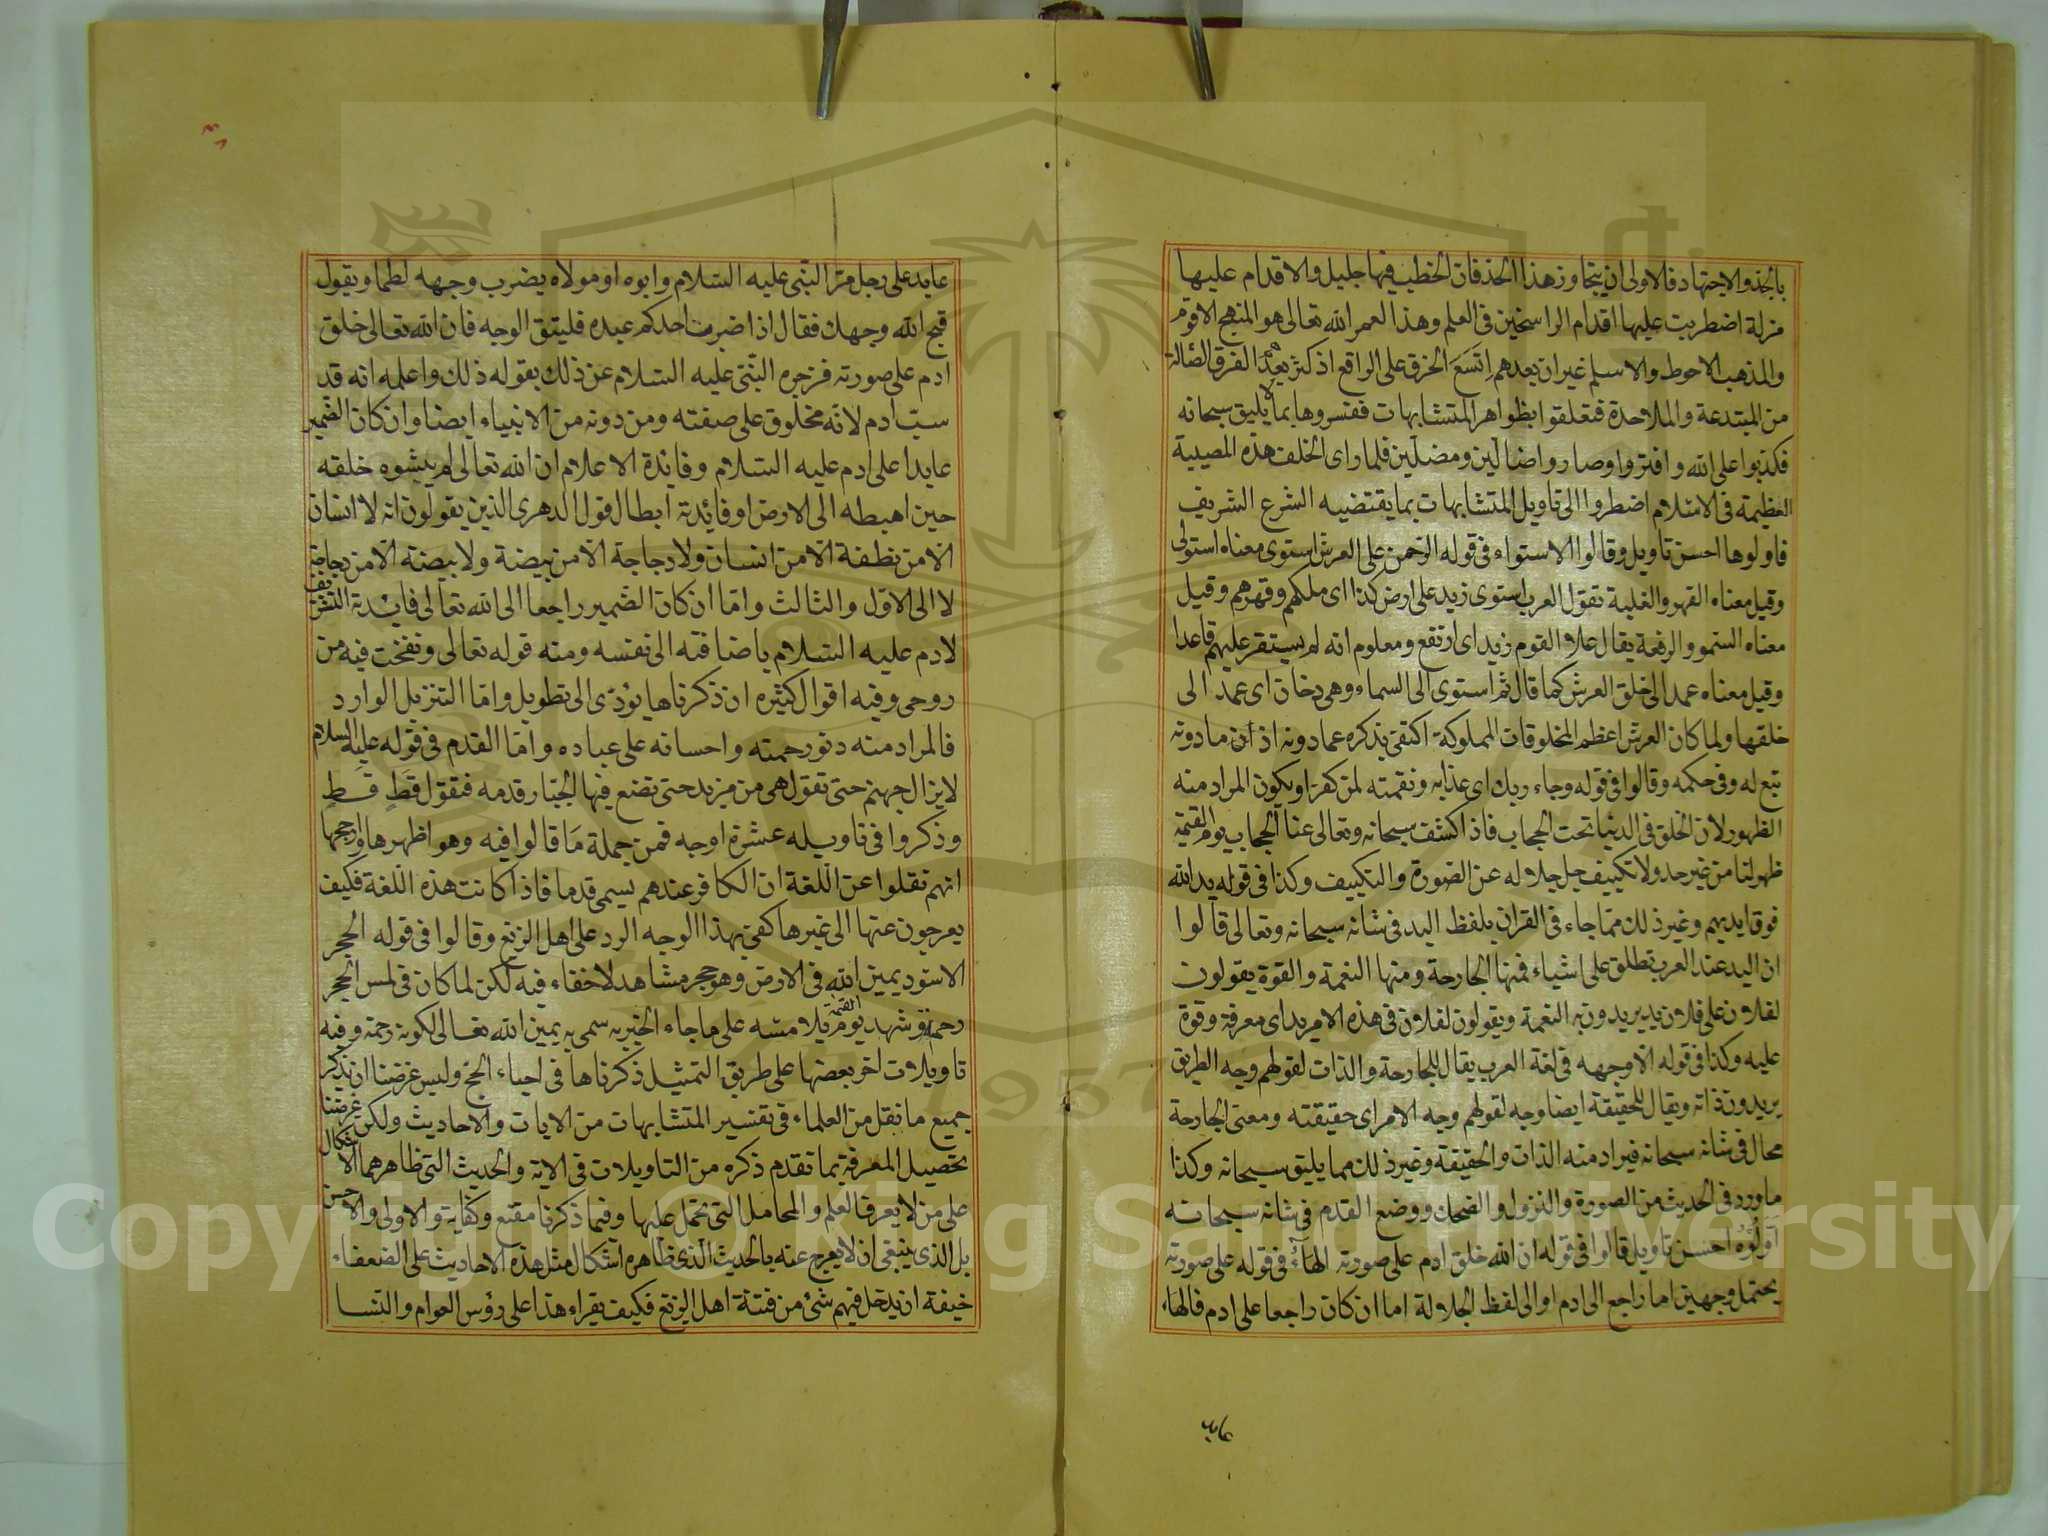 بالجد والاجتهاد فالاولى ان يتجاوز هذا الحد فان الخطب فيها جليل والاقدام عليها
مزلة اضطربت عليها اقدام الراسخين فى العلم وهذا العمر الله تعالى هو المنهج الاقوم
والمذهب الاحوط والاسلم غير ان بعدهم اتسع الخرق على الراقع اذ كثر بعد الفرق الضالة
من المبتدعة والملاحدة فتعلقوا بظواهر المتشابهات ففسروها بما لا يليق سبحانه
فكذبوا على الله وافتروا وصاروا ضالين ومضلين فلما راى الخلف هذه المصيبة
العظيمة فى الاسلام اضطروا الى تاويل المتشابهات بما يقتضيه الشرع الشريف
فاولوها احسن تاويل وقالوا الاستواء فى قوله الرحمن على العرش استوى معناه استولى
وقيل معناه القهر والغلبة تقول العرب استوى زيد على ارض كذا اى ملكهم وقهرهم وقيل
معناه السمو والرفعة يقال علا القوم زيد اى ارتفع ومعلوم انه لم يستقر عليهم قاعدا
وقيل معناه عمد الى خلق العرش كما قال ثم استوى الى السماء وهى دخان اى عمد الى
خلقها ولما كان العرش اعظم المخلوقات المملوكة اكتفى بذكره عما دونه اذ ان ما دونه
تبع له وفى حكمه وقالوا فى قوله وجاء ربك اى عذابه ونقمته لمن كفر او يكون المراد منه
الظهور لان الخلق فى الدنيا تحت الحجاب فاذا كشف سبحانه وتعالى عنا الحجاب يوم القيمة
ظهر لنا من غير حد ولا تكييف جل جلاله عن الصورة والتكييف وكذا فى قوله يد الله
فوق ايديهم وغير ذلك مما جاء فى القران بلفظ اليد فى شانه سبحانه وتعالى قالوا
ان اليد عند العرب تطلق على اشياء فمنها الجارحة ومنها النعمة والقوة يقولون
لفلان على فلان يد يريدون به النعمة ويقولون لفلان فى هذه الامر يد اى معرفة وقوة
عليه وكذا فى قوله الا وجهه فى لغة العرب يقال للجارحة والذات لقولهم وجه الطريق
يريدون ذاته ويقال للحقيقة ايضا وجه لقولهم وجه الامر اى حقيقته ومعنى الجارحة
محال فى شانه سبحانه فيراد منه الذات والحقيقة وغير ذلك مما يليق سبحانه وكذا
ما ورد فى الحديث من الصورة والنزول والضحك ووضع القدم فى شانه سبحانه
اولوه احسن تاويل قالوا فى قوله ان الله خلق ادم على صورته الهاء فى قوله على صورته
يحتمل وجهين اما راجع الى ادم او الى لفظ الجلالة اما ان كان راجعا على ادم فالهاء
عايد
عايد على رجل مر النبى عليه السلام وابوه او مولاه يضرب وجهه لطما ويقول
قبح الله وجهك فقال اذا ضرب احدكم عبده فليتق الوجه فان الله تعالى خلق
ادم على صورته فزجره النبى عليه السلام عن ذلك بقوله ذلك واعلمه انه قد
سب ادم لانه مخلوق على صفته ومن دونه من الانبياء ايضا وان كان الضمير
عايدا على ادم عليه السلام وفائدة الاعلام ان الله تعالى لم يشوه خلقه
حين اهبطه الى الارض او فائدته ابطال قول الدهرى الذين يقولون انه لا انسان
الا من نطفة الا من انسان ولا دجاجة الا من بيضة ولا بيضة الا من دجاجة
لا الى الاول والثالث واما ان كان الضمير راجعا الى الله تعالى فائدته التشريف
لادم عليه السلام باضافته الى نفسه ومنه قوله تعالى ونفخت فيه من
روحى وفيه اقوال كثيره ان ذكرناها يؤدى الى تطويل واما التنزيل الوارد
فالمراد منه دنو رحمته واحسانه على عباده واما القدم فى قوله عليه السلام
لا يزال جهنم حتى تقول هى من مزيد حتى تضع فيها الجبار قدمه فتقول قط قط
وذكروا فى تاويله عشرة اوجه فمن جملة ما قالوا فيه وهو اظهرها وارجحها
انهم نقلوا عن اللغة ان الكافر عندهم يسمى قدما فاذا كانت هذه اللغة فكيف
يعرجون عنها الى غيرها كفى بهذا الوجه الرد على اهل الزيغ وقالوا فى قوله الحجر
الاسود يمين الله فى الارض وهو حجر مشاهد لا خفاء فيه لكن لما كان فى لمس الحجر
رحمة وشهد يوم القيمة يلامسه على ما جاء الخبر به سمى به يمين الله تعالى لكونه رحمة وفيه
تاويلات اخر بعضها على طريق التمثيل ذكرناها فى احياء الحج وليس غرضنا ان نذكر
جميع ما نقل من العلماء فى تفسير المتشابهات من الايات والاحاديث ولكن غرضنا
تحصيل المعرفة بما تقدم ذكره من التاويلات فى الاية والحديث التى ظاهرهما الاشكال
على من لا يعرف العلم والمحامل التى تحمل عليها وفيما ذكرنا مقنع وكفاية والاولى والاحسن
بل الذى ينبغى ان لا يعرج عنه بالحديث الذى ظاهره اشكال مثل هذه الاحاديث على الضعفاء
خيفة ان يدخل فيهم شئ من فتنة اهل الزيغ فكيف يقراء هذا على رؤس العوام والنسا
Copyright © King Saud University
1957